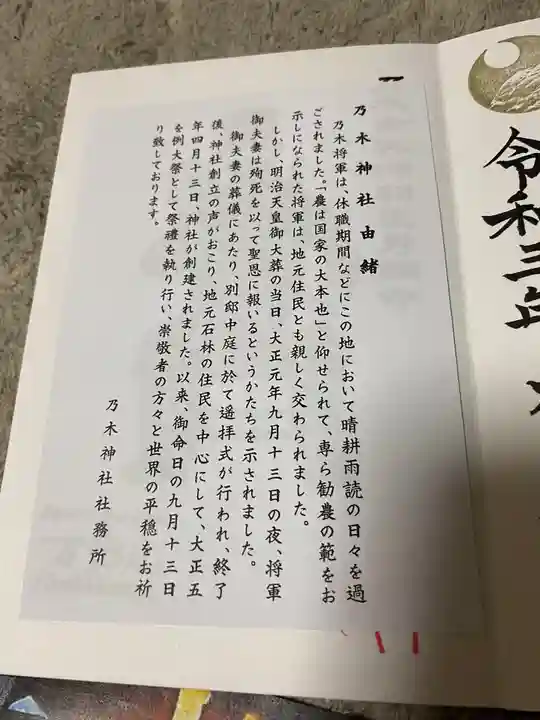 乃木神社由緒
乃木将軍は、休職期間などにこの地において晴耕雨読の日々を過
ごされました。「農は国家の大本也」と仰せられて、専ら勧農の範をお
示しになられた将軍は、地元住民とも親しく交わられました。
しかし、明治天皇御大葬の当日、大正元年九月十三日の夜、将軍
御夫妻は殉死を以って聖恩に報いるというかたちを示されました。
御夫妻の葬儀にあたり、別邸中庭に於て遥拝式が行われ、終了
後、神社創立の声がおこり、地元石林の住民を中心にして、大正五
年四月十三日、神社が創建されました。以来、御命日の九月十三日
を例大祭として祭禮を執り行い、崇敬者の方々と世界の平穏をお祈
り致しております。
乃木神社社務所
令和三年